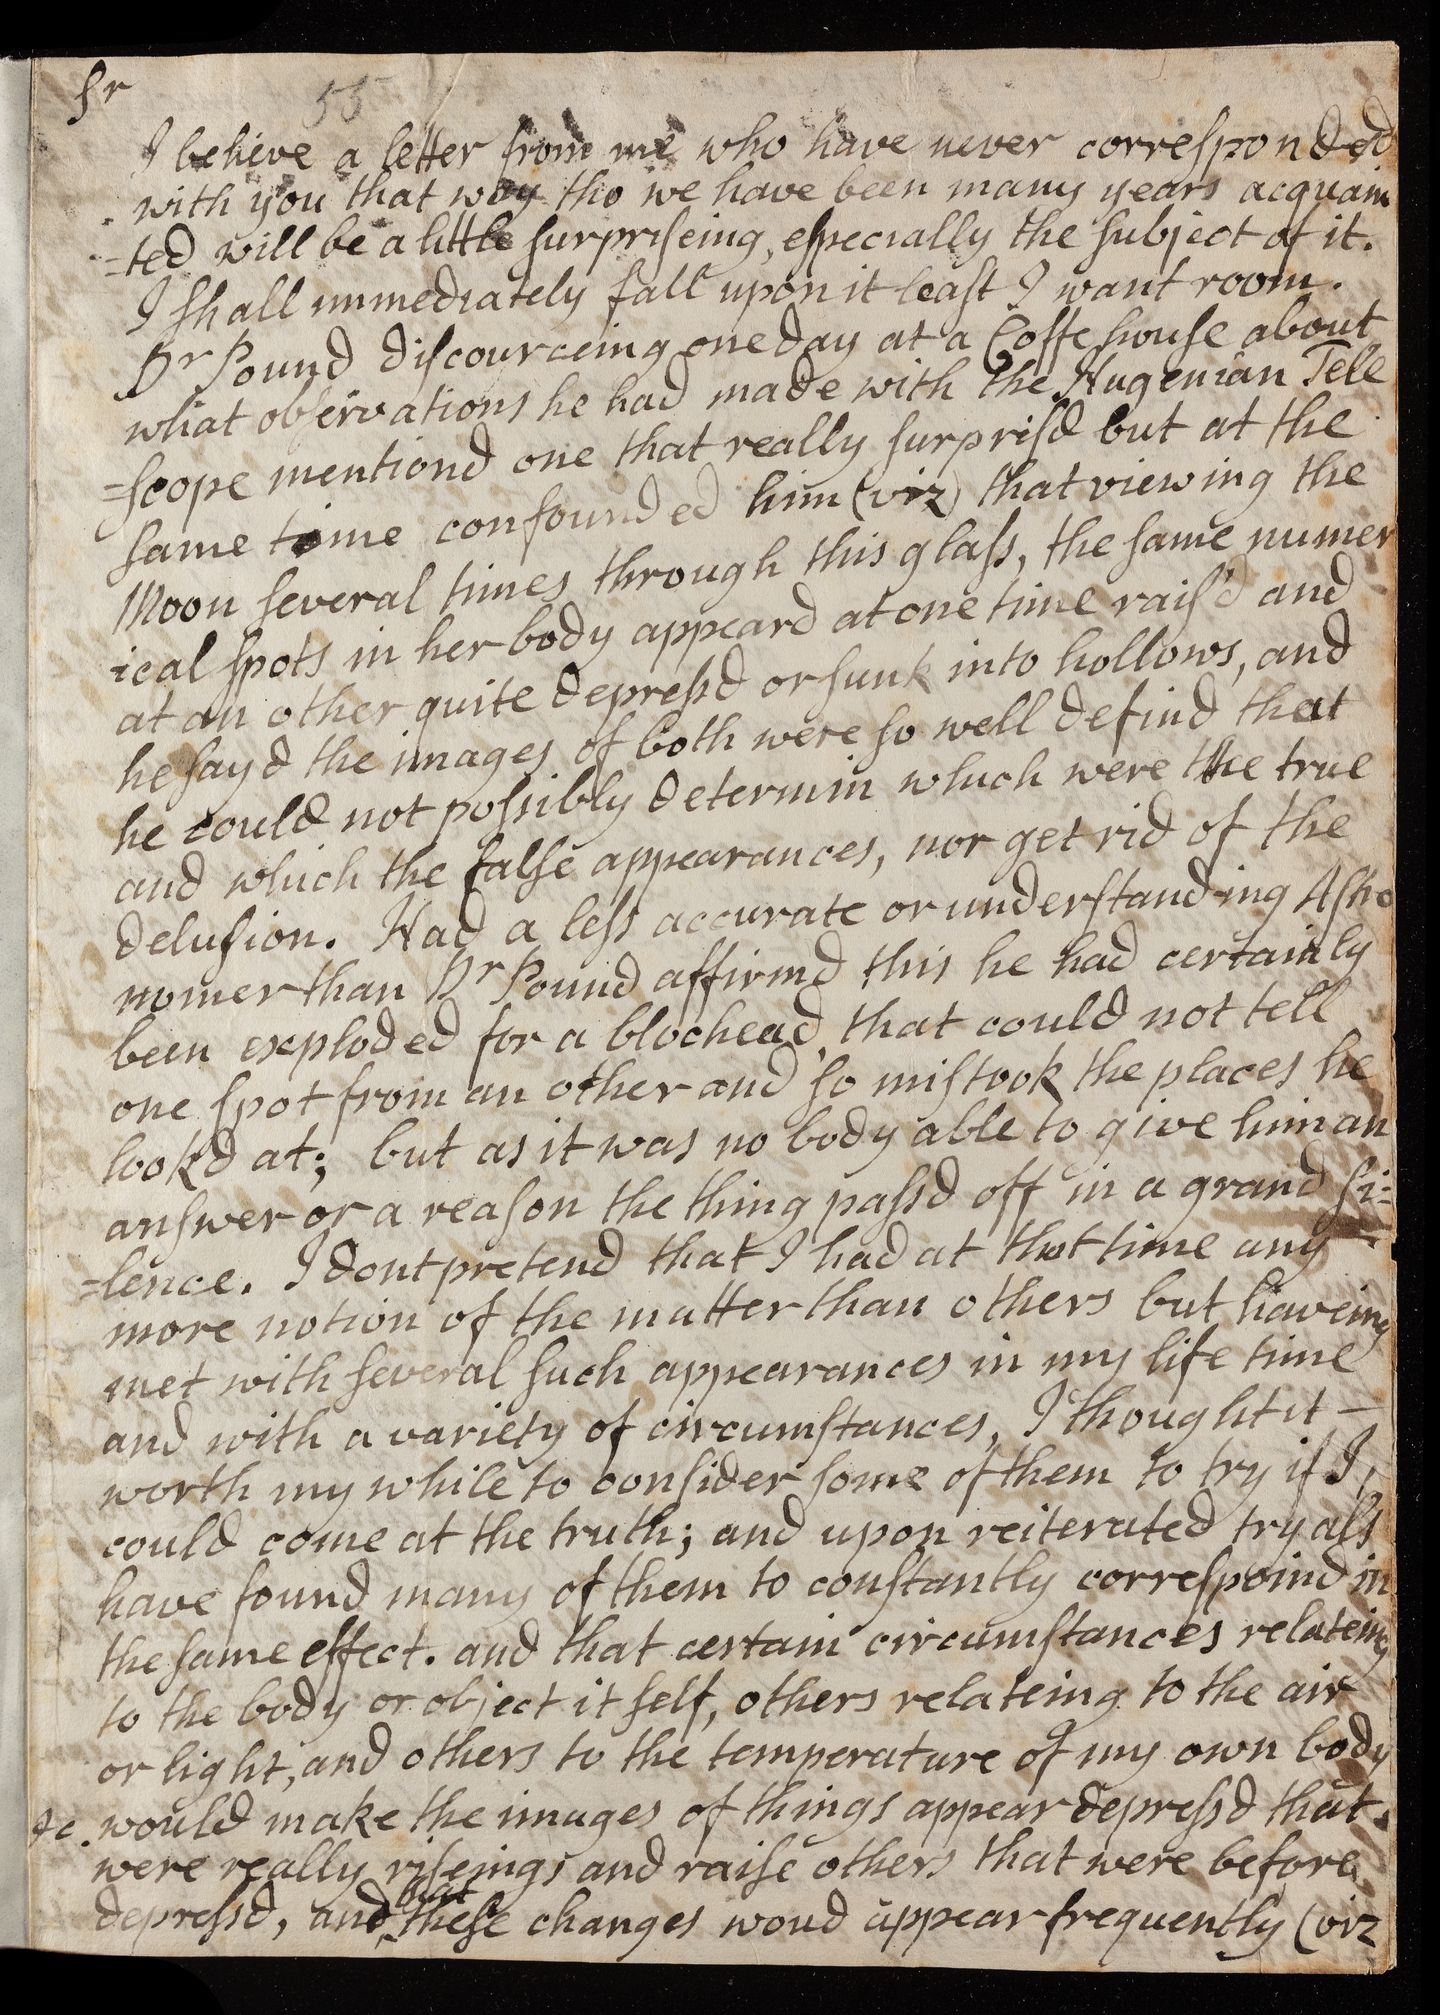 Sr
55
I believe a letter from me who have never corresponded
with you that way tho we have been many years acquain
=ted will be a little surpriseing, especially the subject of it.
I shall immediately fall upon it least I want room.
Dr Pound discourceing one day at a Coffe house about
what observations he had made with the Hugenian Tele
=scope mentiond one that really surprisd but at the
same time confounded him (viz) that viewing the
Moon several times through this glass, the same numer
ical spots in her body appeard at one time rais'd and
at an other quite depressd or sunk into hollows, and
he sayd the images of both were so well defind that
he could not possibly determin which were the true
and which the false appearances, nor get rid of the
delusion. Had a less accurate or understanding Astro
nomer than Dr Pound affirmd this he had certainly
been exploded for a blockead, that could not tell
one spot from an other and so mistook the places he
look'd at; but as it was no body able to give him an
answer or a reason the thing passd off in a grand si=
=lence. I dont pretend that I had at that time any
more notion of the matter than others but haveing
met with several such appearances in my life time
and with a variety of circumstances, I thought it —
worth my while to consider some of them to try if I
could come at the truth; and upon reiterated tryals
have found many of them to constantly correspoind in
the same effect. and that certain circumstances relateing
to the body or object it self, others relateing to the air
or light, and others to the temperature of my own body
&c. would make the images of things appear depressd that
were really riseings and raise others that were before
depressd, and that these changes woud appear frequently (viz